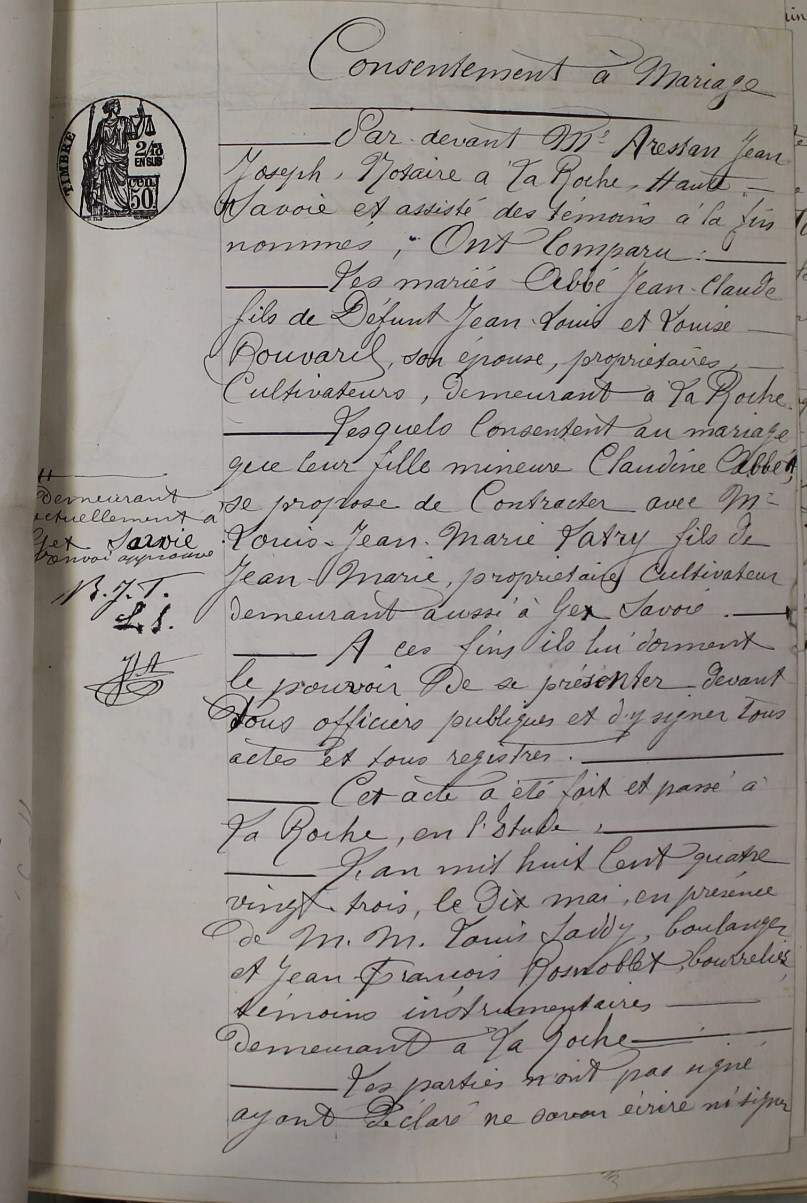 Consentement à Mariage
TIMBRE
2/10
EN SUS
50
Par devant Me Aressan Jean
Joseph, Notaire a La Roche, Haute
Savoie et assisté des témoins à la fin
nommés, Ont Comparu :
Les mariés Abbé Jean-Claude
fils de Défunt Jean-Louis et Louise
son épouse, propriétaires,
Cultivateurs, demeurant à La Roche.
Lesquels Consentent au mariage
que leur fille mineure Claudine Abbé,
se propose de Contracter avec Mr
Louis-Jean-Marie Latry fils de
Jean-Marie, propriétaire Cultivateur
demeurant aussi à Gex Savoie.
A ces fins ils lui donnent
le pouvoir De se présenter devant
Tous officiers publiques et d'y signer tous
actes et tous registres.
Cet acte a été fait et passé à
La Roche, en l'Etude,
L'an mil huit Cent quatre
vingt-trois, le Dix mai, en présence
de M. M. Louis boulanger
et Jean François Rosnoblet, bourrelier,
témoins instrumentaires
Demeurant à La Roche
Les parties n'ont pas signé
ayant Déclaré ne savoir écrire ni signer
demeurant
actuellement à
Gex Savoie
renvoi approuvé